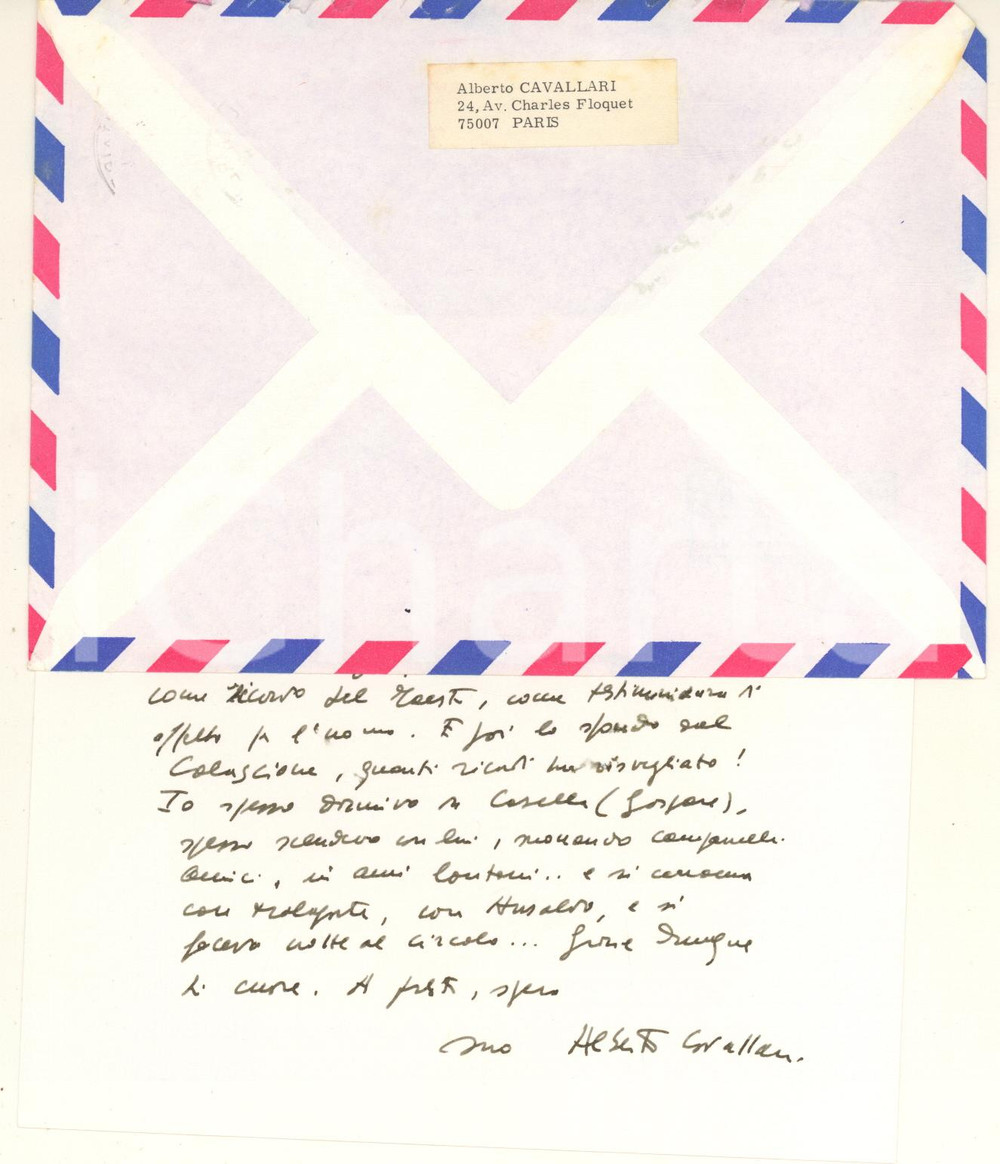 Alberto CAVALLARI
24, Av. Charles Floquet
75007 PARIS
come ricordo del Maestro, come testimonianza d'
affetto per l'uomo. E poi lo sfondo del
Colascione, quanti ricordi ha risvegliato!
Io spesso dormivo da Casella (Gaspare),
spesso scendevo con lui, suonando campanelli
amici, in anni lontani.. e si cenava
con Malaparte, con Ansaldo, e si
faceva notte al circolo... Grazie dunque
di cuore. A presto, spero
suo Alberto Cavallari.
ichart